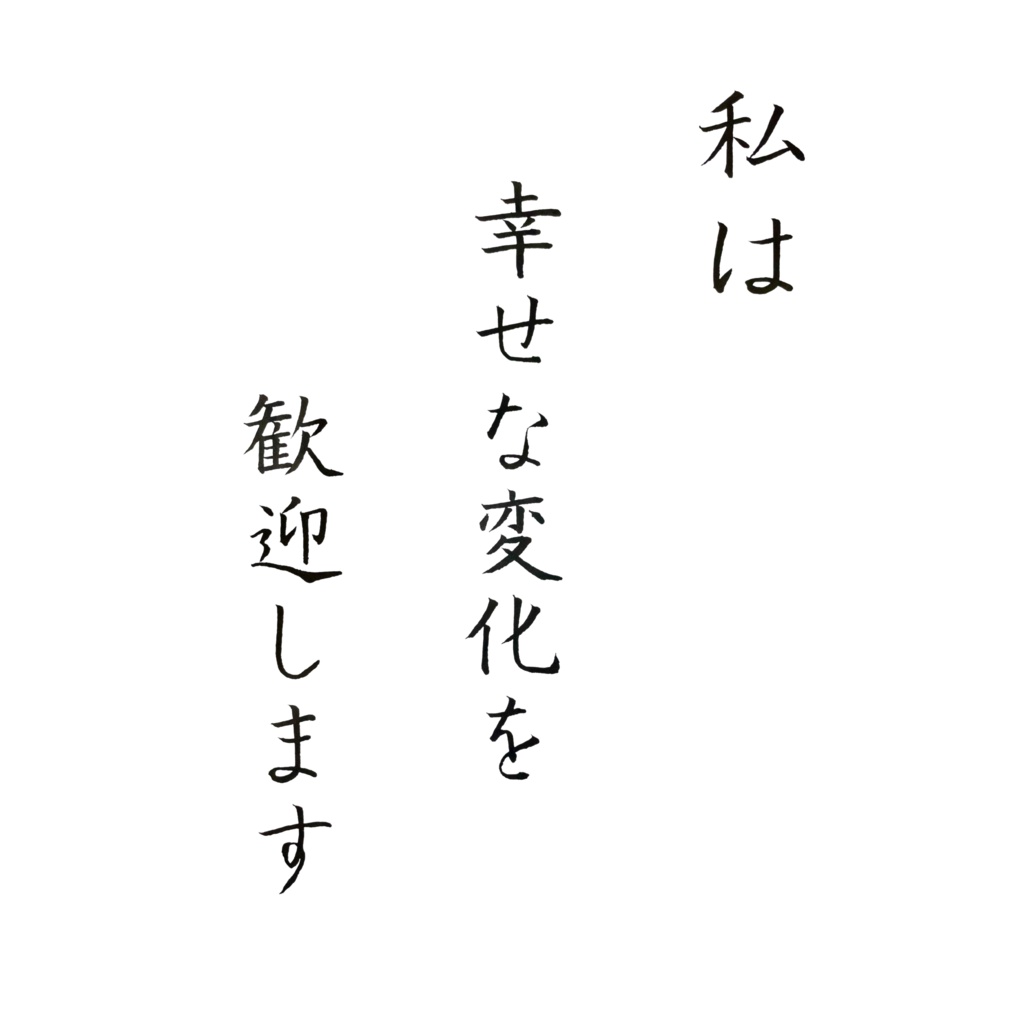 私は
幸せな変化を
歓迎します